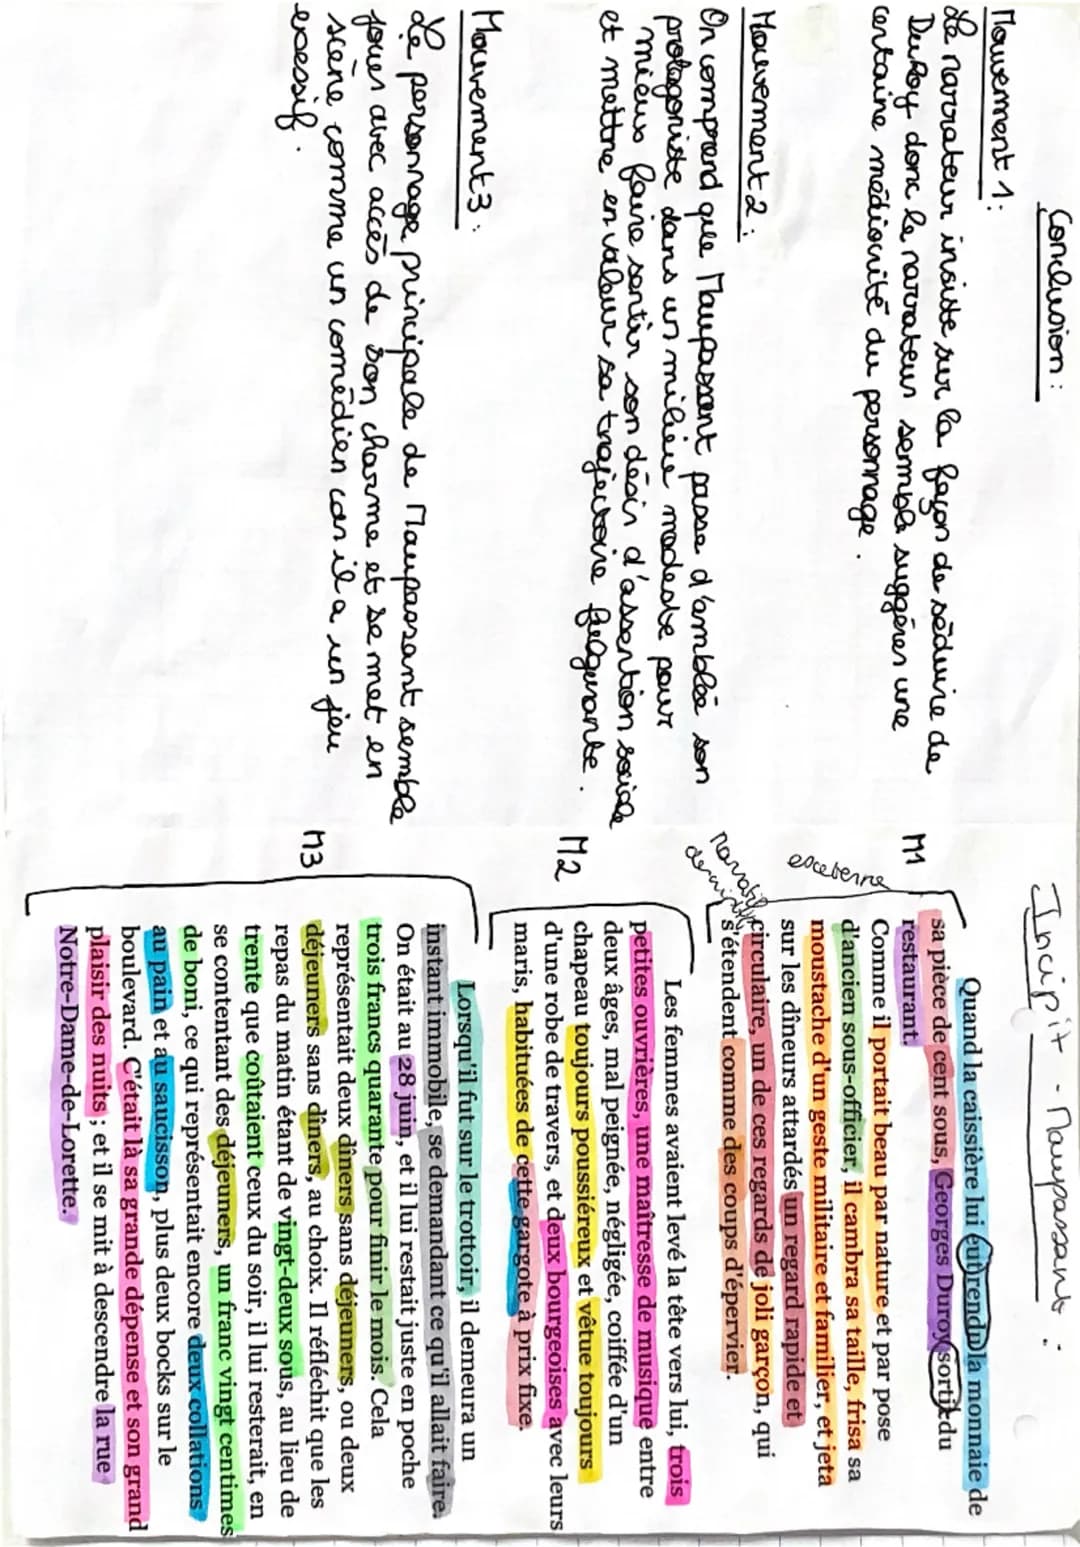 Conclusion :
Mouvement 1 :
Le narrateur insiste sur la façon de séduire de
DuRoy donc le narrateur semble suggérer une
certaine médiocrité du personnage.
Mouvement 2 :
On comprend que Maupassant passe d'emblée son
protagoniste dans un milieu modeste pour
mieux faire sentir son désir d'assention sociale
et mettre en valeur sa trajectoire fulgurante.
Mouvement 3 :
Le personnage principale de Maupassant semble
jouer avec accès de son charme et se met en
scène comme un comédien car il a un jeu
excessif.
Incipit - Maupassant :
M1
externe
narratif
Quand la caissière lui eut rendu la monnaie de
sa pièce de cent sous, Georges Duroy sortit du
restaurant.
Comme il portait beau par nature et par pose
d'ancien sous-officier, il cambra sa taille, frisa sa
moustache d'un geste militaire et familier, et jeta
sur les dîneurs attardés un regard rapide et
circulaire, un de ces regards de joli garçon, qui
s'étendent comme des coups d'épervier.
M2
Les femmes avaient levé la tête vers lui, trois
petites ouvrières, une maîtresse de musique entre
deux âges, mal peignée, négligée, coiffée d'un
chapeau toujours poussiéreux et vêtue toujours
d'une robe de travers, et deux bourgeoises avec leurs
maris, habituées de cette gargote à prix fixe.
M3
Lorsqu'il fut sur le trottoir, il demeura un
instant immobile, se demandant ce qu'il allait faire.
On était au 28 juin, et il lui restait juste en poche
trois francs quarante pour finir le mois. Cela
représentait deux dîners sans déjeuners, ou deux
déjeuners sans dîners, au choix. Il réfléchit que les
repas du matin étant de vingt-deux sous, au lieu de
trente que coûtaient ceux du soir, il lui resterait, en
se contentant des déjeuners, un franc vingt centimes
de boni, ce qui représentait encore deux collations
au pain et au saucisson, plus deux bocks sur le
boulevard. C'était là sa grande dépense et son grand
plaisir des nuits ; et il se mit à descendre la rue
Notre-Dame-de-Lorette.